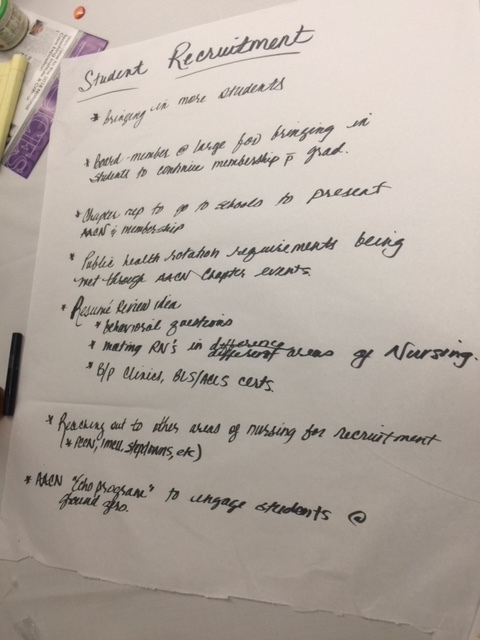 Student Recruitment
* bringing in more students
* Board-member @ large for bringing in
students to continue membership p̄ grad.
* Chapter rep to go to schools to present
AACN & membership
* Public health rotation requirements being
met through AACN Chapter events
* Resumé Review idea
* behavioral questions
* mating RN's in different areas of Nursing.
* B/p Clinics, BLS/ACLS certs.
* Reaching out to other areas of nursing for recruitment
(* PCCN, imcu, stepdowns, etc)
* AACN "Echo program" to engage students @
ground zero.